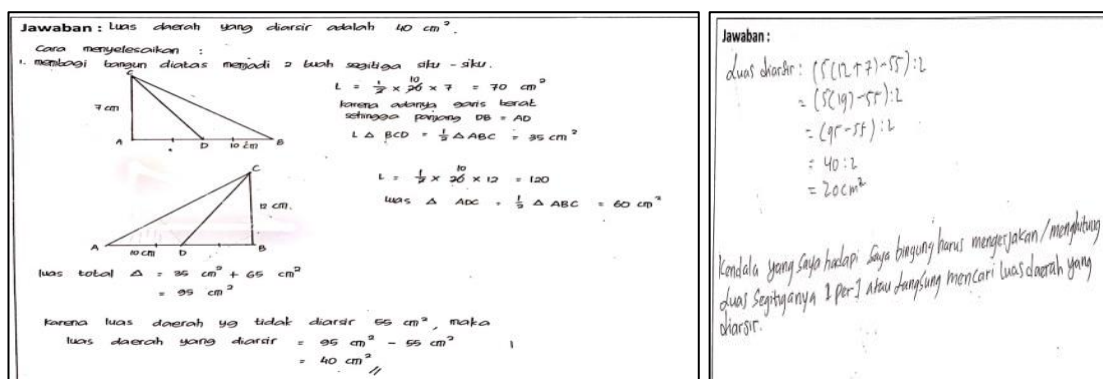 Jawaban : Luas daerah yang diarsir adalah 40 cm².
Cara menyelesaikan :
1. membagi bangun diatas menjadi 2 buah segitiga siku - siku.
C
7 cm
A D 10 cm B
L = 1/2 × 20 10 × 7 = 70 cm²
karena adanya garis berat
sehingga panjang DB = AD
L △ BCD = 1/2 △ ABC = 35 cm²
C
12 cm.
A 10 cm D B
L = 1/2 × 20 10 × 12 = 120
luas △ ADC = 1/2 △ ABC = 60 cm²
luas total △ = 35 cm² + 65 cm²
= 95 cm²
Karena luas daerah yg tidak diarsir 55 cm², maka
luas daerah yang diarsir = 95 cm² - 55 cm²
= 40 cm² //
Jawaban :
Luas diarsir : (5(12+7)-55):2
= (5(19)-55):2
= (95-55):2
= 40:2
= 20 cm²
Kendala yang saya hadapi saya bingung harus mengerjakan/menghitung
Luas segitiganya 1 per 1 atau langsung mencari luas daerah yang
diarsir.